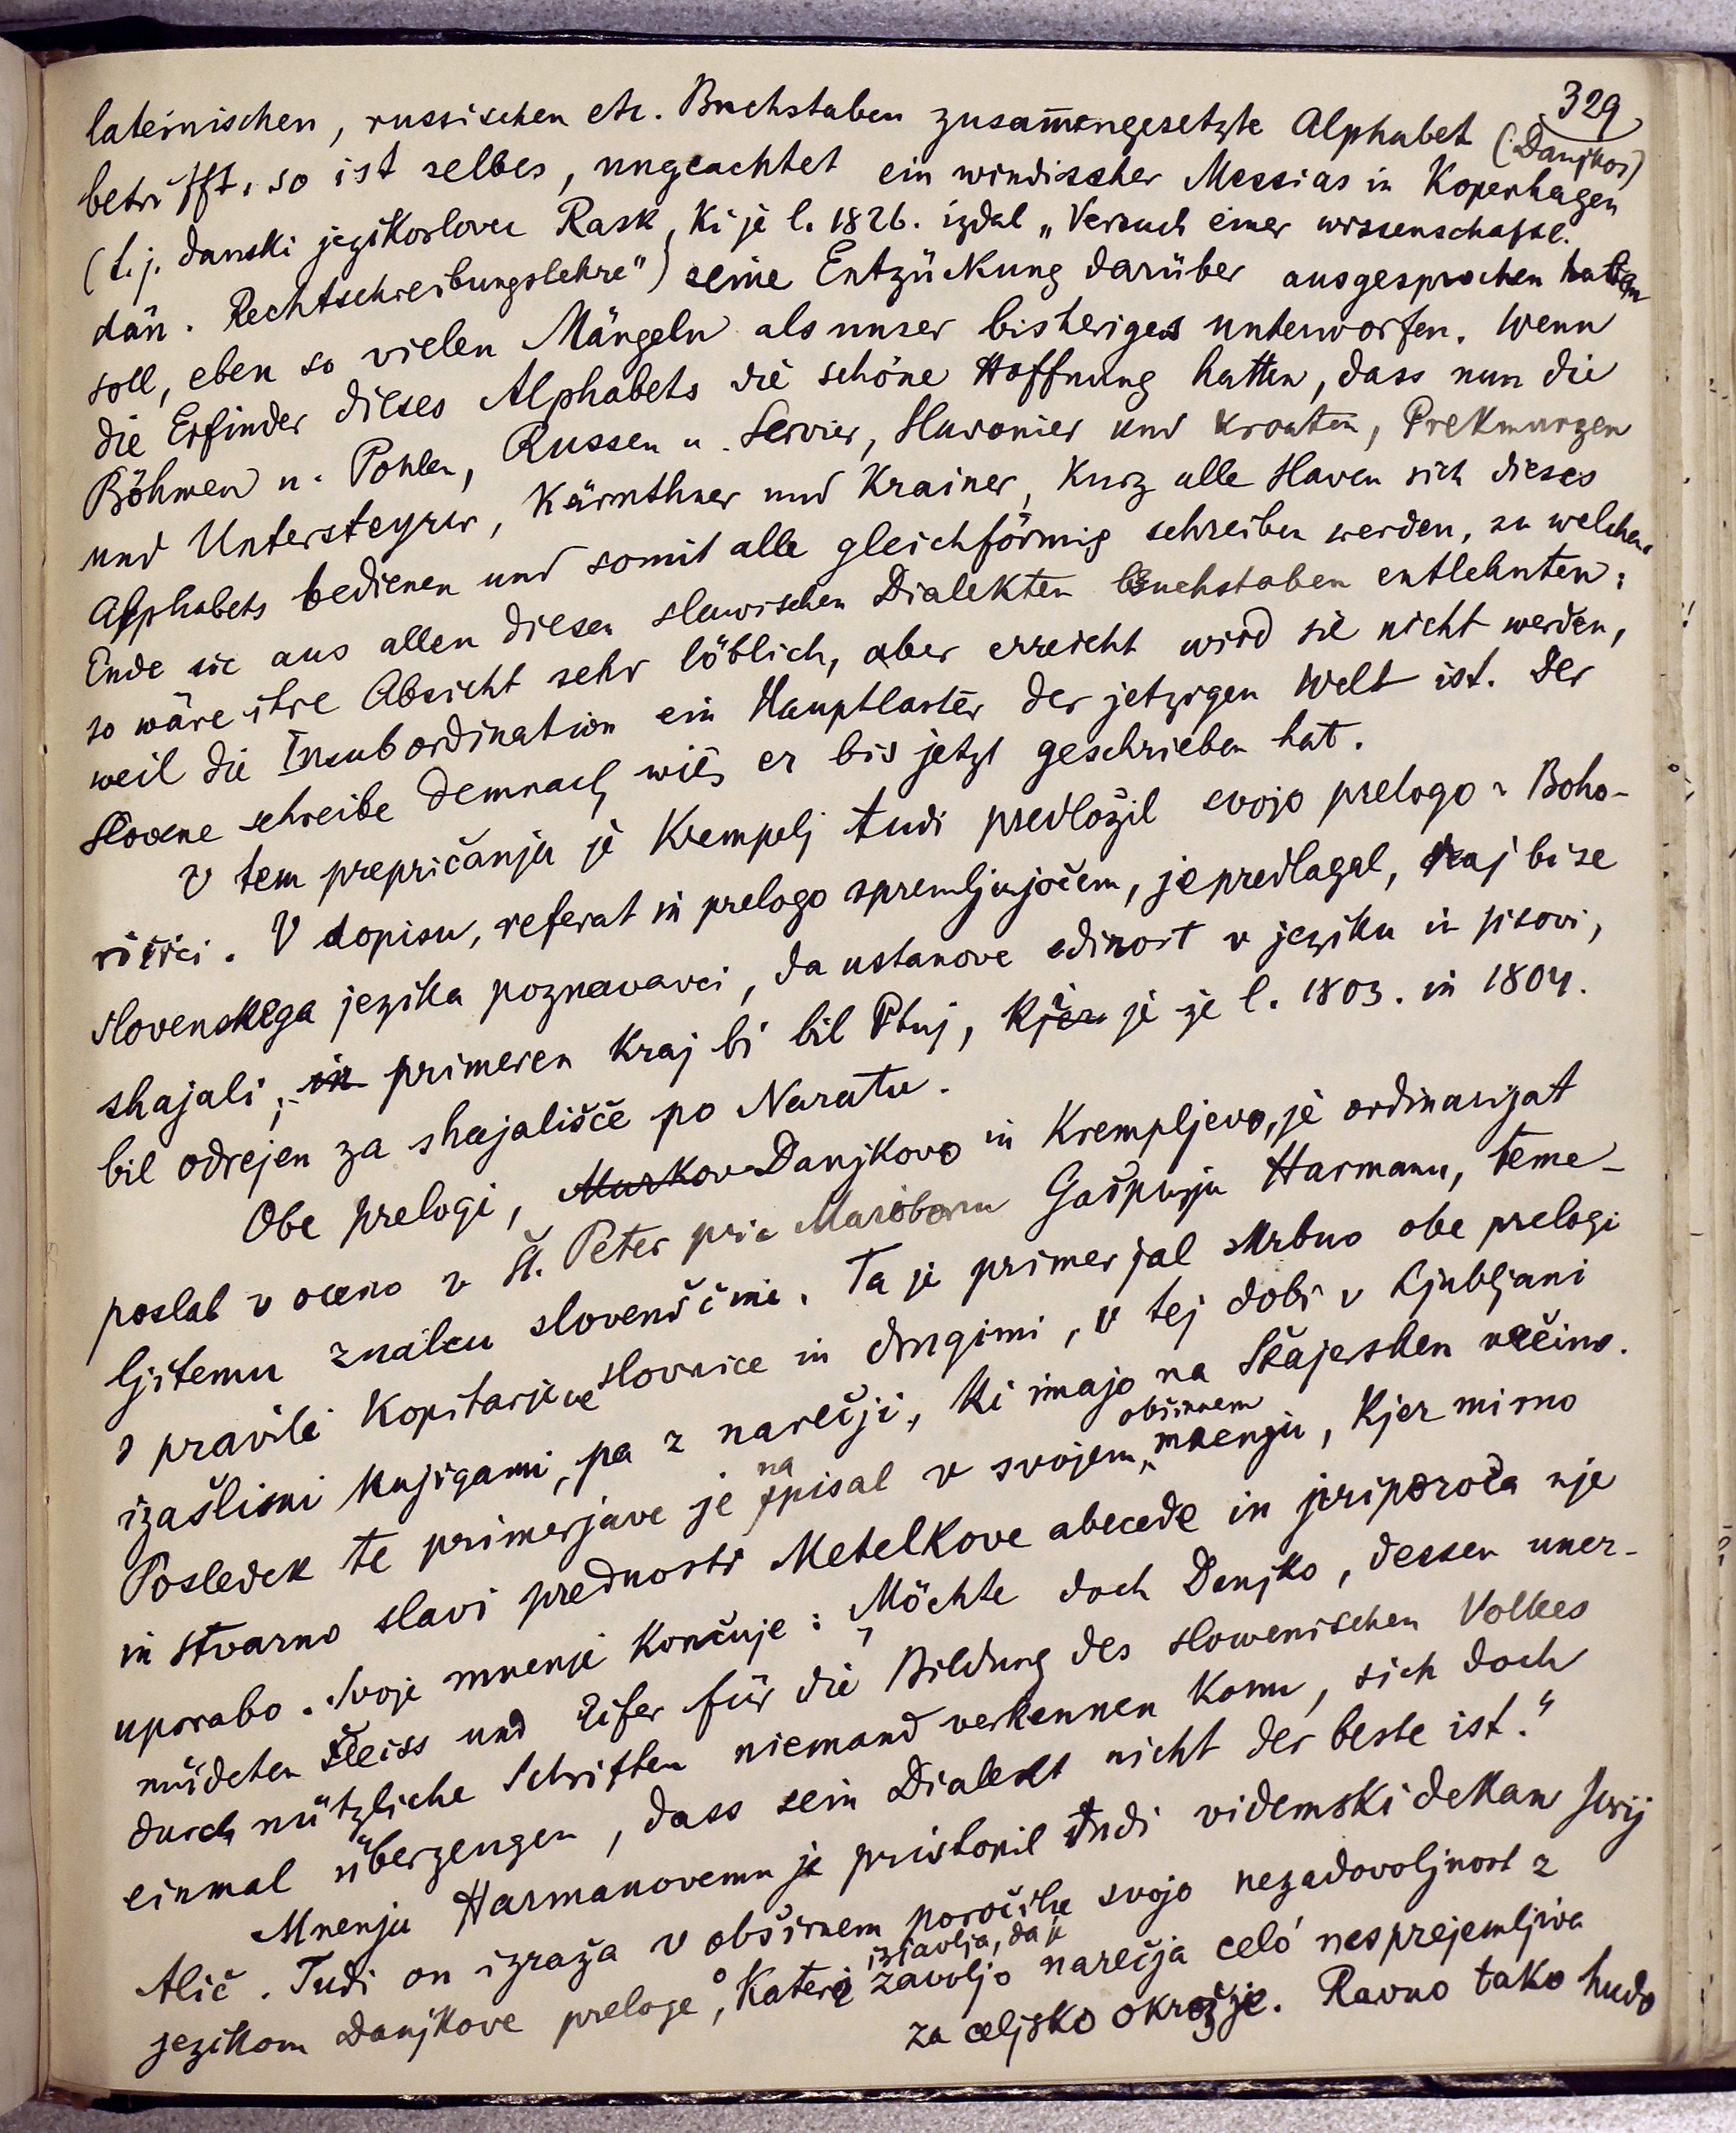 329
lateinischen, russischen etc. Buchstaben zusam̅engesetzte Alphabet (Danjkos)
betrifft, so ist selbes, ungeachtet ein windischer Messias in Kopenhagen
(t. j. danski jezikoslovec Rask, ki je l. 1826. izdal „Versuch einer wissenschaftl.
dän. Rechtschreibungslehre") seine Entzückung darüber ausgesprochen haben
soll, eben so vielen Mängeln als unser bisheriges unterworfen. Wenn
die Erfinder dieses Alphabets die schöne Hoffnung hatten, dass nun die
Böhmen u. Pohlen, Russen u. Servier, Slavonier und Kroaten, Prekmurzen
und Untersteyrer, Kärnthner und Krainer, kurz alle Slaven sich dieses
Alphabets bedienen und somit alle gleichförmig schreiben werden, zu welchem
Ende sie aus allen diesen slawischen Dialekten Buchstaben entlehnten:
so wäre ihre Absicht sehr löblich, aber erreicht wird sie nicht werden,
weil die Insubordination ein Hauptlaster der jetzigen Welt ist. Der
Slovene schreibe demnach, wie er bis jetzt geschrieben hat.
V tem prepričanju je Krempelj tudi predložil svojo prelogo v Boho-
ričici. V dopisu, referat in prelogo spremljujočem, je predlagal, naj bi se
slovenskega jezika poznavavci, da ustanove edinost v jeziku in pisovi,
shajali; in primeren kraj bi bil Ptuj, kjer je že l. 1803. in 1804.
bil odrejen za shajališče po Naratu.
Obe prelogi, Murkov Danjkovo in Krempljevo, je ordinarijat
poslal v oceno v Št. Peter pri Mariboru Gašparju Harmanu, teme-
ljitemu znalcu slovenščine. Ta je primerjal skrbno obe prelogi
s pravili Kopitarjeve slovnice in drugimi, v tej dobi v Ljubljani
izašlimi knjigami, pa z narečji, ki imajo na Štajerskem večino.
Posledek te primerjave je napisal v svojem obširnem mnenju, kjer mirno
in stvarno slavi prednosti Metelkove abecede in priporoča nje
uporabo. Svoje mnenje končuje: „Möchte doch Danjko, dessen uner-
müdeten Fleiss und Eifer für die Bildung des slowenischen Volkes
durch nützliche Schriften niemand verkennen kann, sich doch
einmal überzeugen, dass sein Dialekt nicht der beste ist."
Mnenju Harmanovemu je pristopil tudi videmski dekan Jurij
Alič. Tudi on izraža v obširnem poročilu svojo nezadovoljnost z
jezikom Danjkove preloge, o kateri izjavlja, da je zavoljo narečja celó nesprejemljiva
za celjsko okrožje. Ravno tako hudo